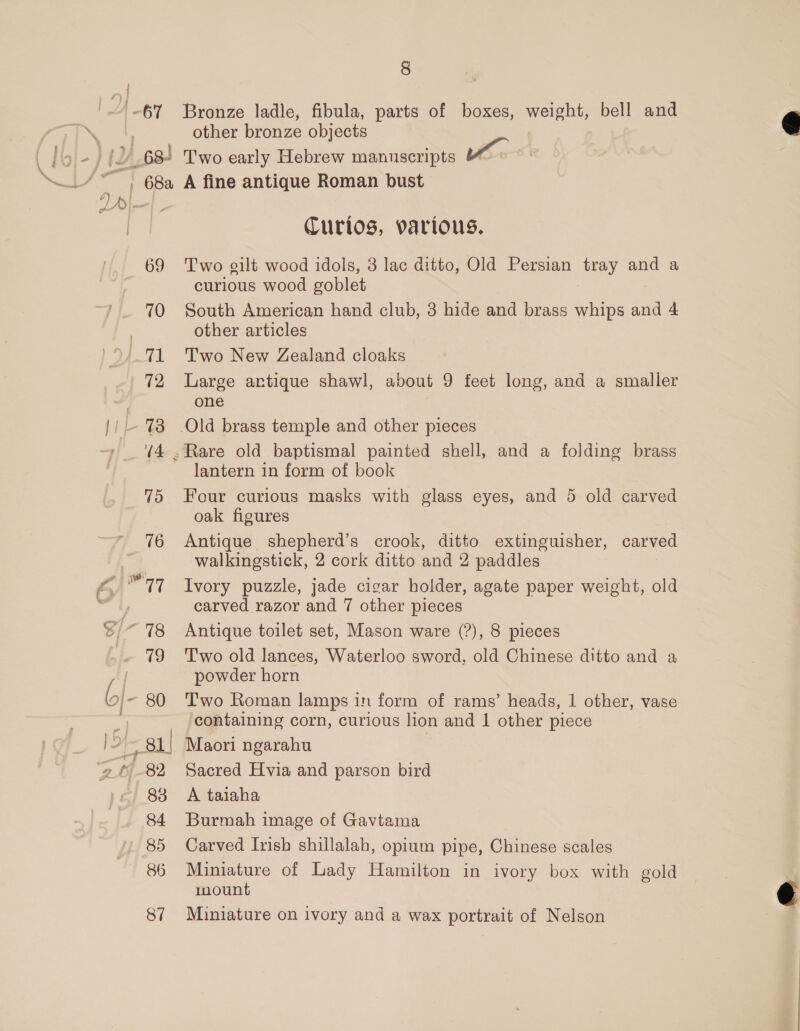 8
67 Bronze ladle, fibula, parts of boxes, weight, bell and
other bronze objects
68 Two early Hebrew manuscripts
68a A fine antique Roman bust
Curios, various.
69 Two gilt wood idols, 3 lac ditto, Old Persian tray and a
curious wood goblet
70 South American hand club, 3 hide and brass whips and 4
other articles
71 Two New Zealand cloaks
72 Large antique shawl, about 9 feet long, and a smaller
one
73 Old brass temple and other pieces
74 Rare old baptismal painted shell, and a folding brass
lantern in form of book
75 Four curious masks with glass eyes, and 5 old carved
oak figures
76 Antique shepherd's crook, ditto extinguisher, carved
walkingstick, 2 cork ditto and 2 paddles
77 Ivory puzzle, jade cigar holder, agate paper weight, old
carved razor and 7 other pieces
78 Antique toilet set, Mason ware (?), 8 pieces
79 Two old lances, Waterloo sword, old Chinese ditto and a
powder horn
80 Two Roman lamps in form of rams' heads, 1 other, vase
containing corn, curious lion and 1 other piece
81 Maori ngarahu
82 Sacred Hvia and parson bird
83 A taiaha
84 Burmah image of Gavtama
85 Carved Irish shillalah, opium pipe, Chinese scales
86 Miniature of Lady Hamilton in ivory box with gold
mount
87 Miniature on ivory and a wax portrait of Nelson